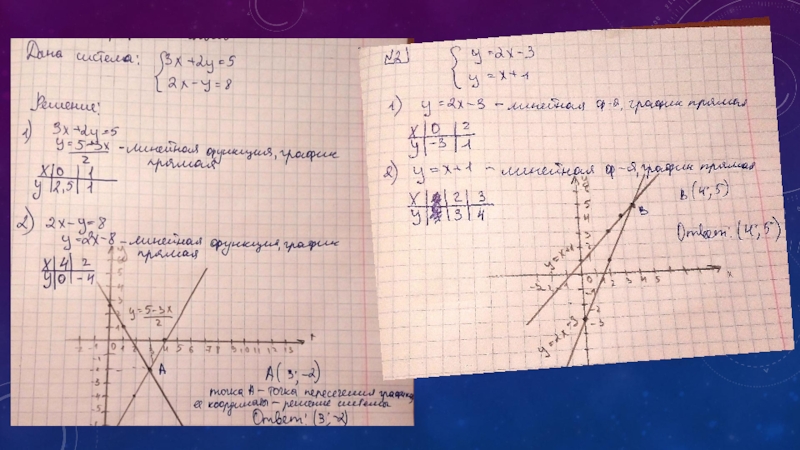 Дана система: {3x+2y=5
2x-y=8
Решение:
1) 3x+2y=5
y=5-3x/2 - линейная функция, график прямая
x|0|1
y|2,5|1
2) 2x-y=8
y=2x-8 - линейная функция, график прямая
x|4|2
y|0|-4
y=5-3x/2
A
0 1 2 3 4 5 6 7 8 9 10 11 12 13
A(3;-2)
точка А - точка пересечения графиков,
её координаты - решение системы
Ответ: (3;-2)
№2) {y=2x-3
y=x+1
1) y=2x-3 - линейная ф-я, график прямая
x|0|2
y|-3|1
2) y=x+1 - линейная ф-я, график прямая
x|2|3
y|3|4
B(4;5)
Ответ: (4;5)
B
y=x+1
y=2x-3
x